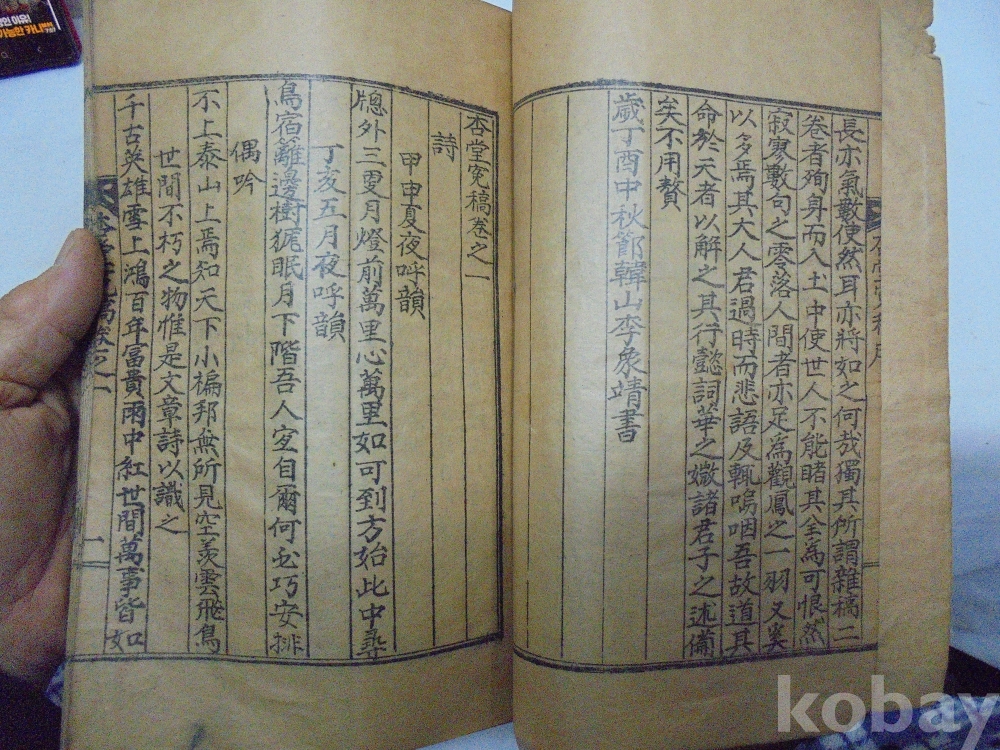 長亦氣數使然耳亦將如之何哉獨其所謂雜稿二
卷者殉身而入土中使世人不能睹其全為可恨然
寂寥數句之零落人間者亦足為觀鳳之一羽又奚
以多焉其大人君過時而悲語及輒嗚咽吾故道其
命於天者以解之其行懿詞華之媺諸君子之述備
矣不用贅
歲丁酉中秋節韓山李象靖書
杏堂寃稿卷之一
詩
甲申夏夜呼韻
牕外三更月燈前萬里心萬里如可到方始此中尋
丁亥五月夜呼韻
鳥宿籬邊樹狵眠月下階吾人定自爾何必巧安排
偶吟
不上泰山上焉知天下小褊邦無所見空羨雲飛鳥
世間不朽之物惟是文章詩以識之
千古英雄雪上鴻百年富貴雨中紅世間萬事皆如
卷之一
一
가능한 카니
kobay